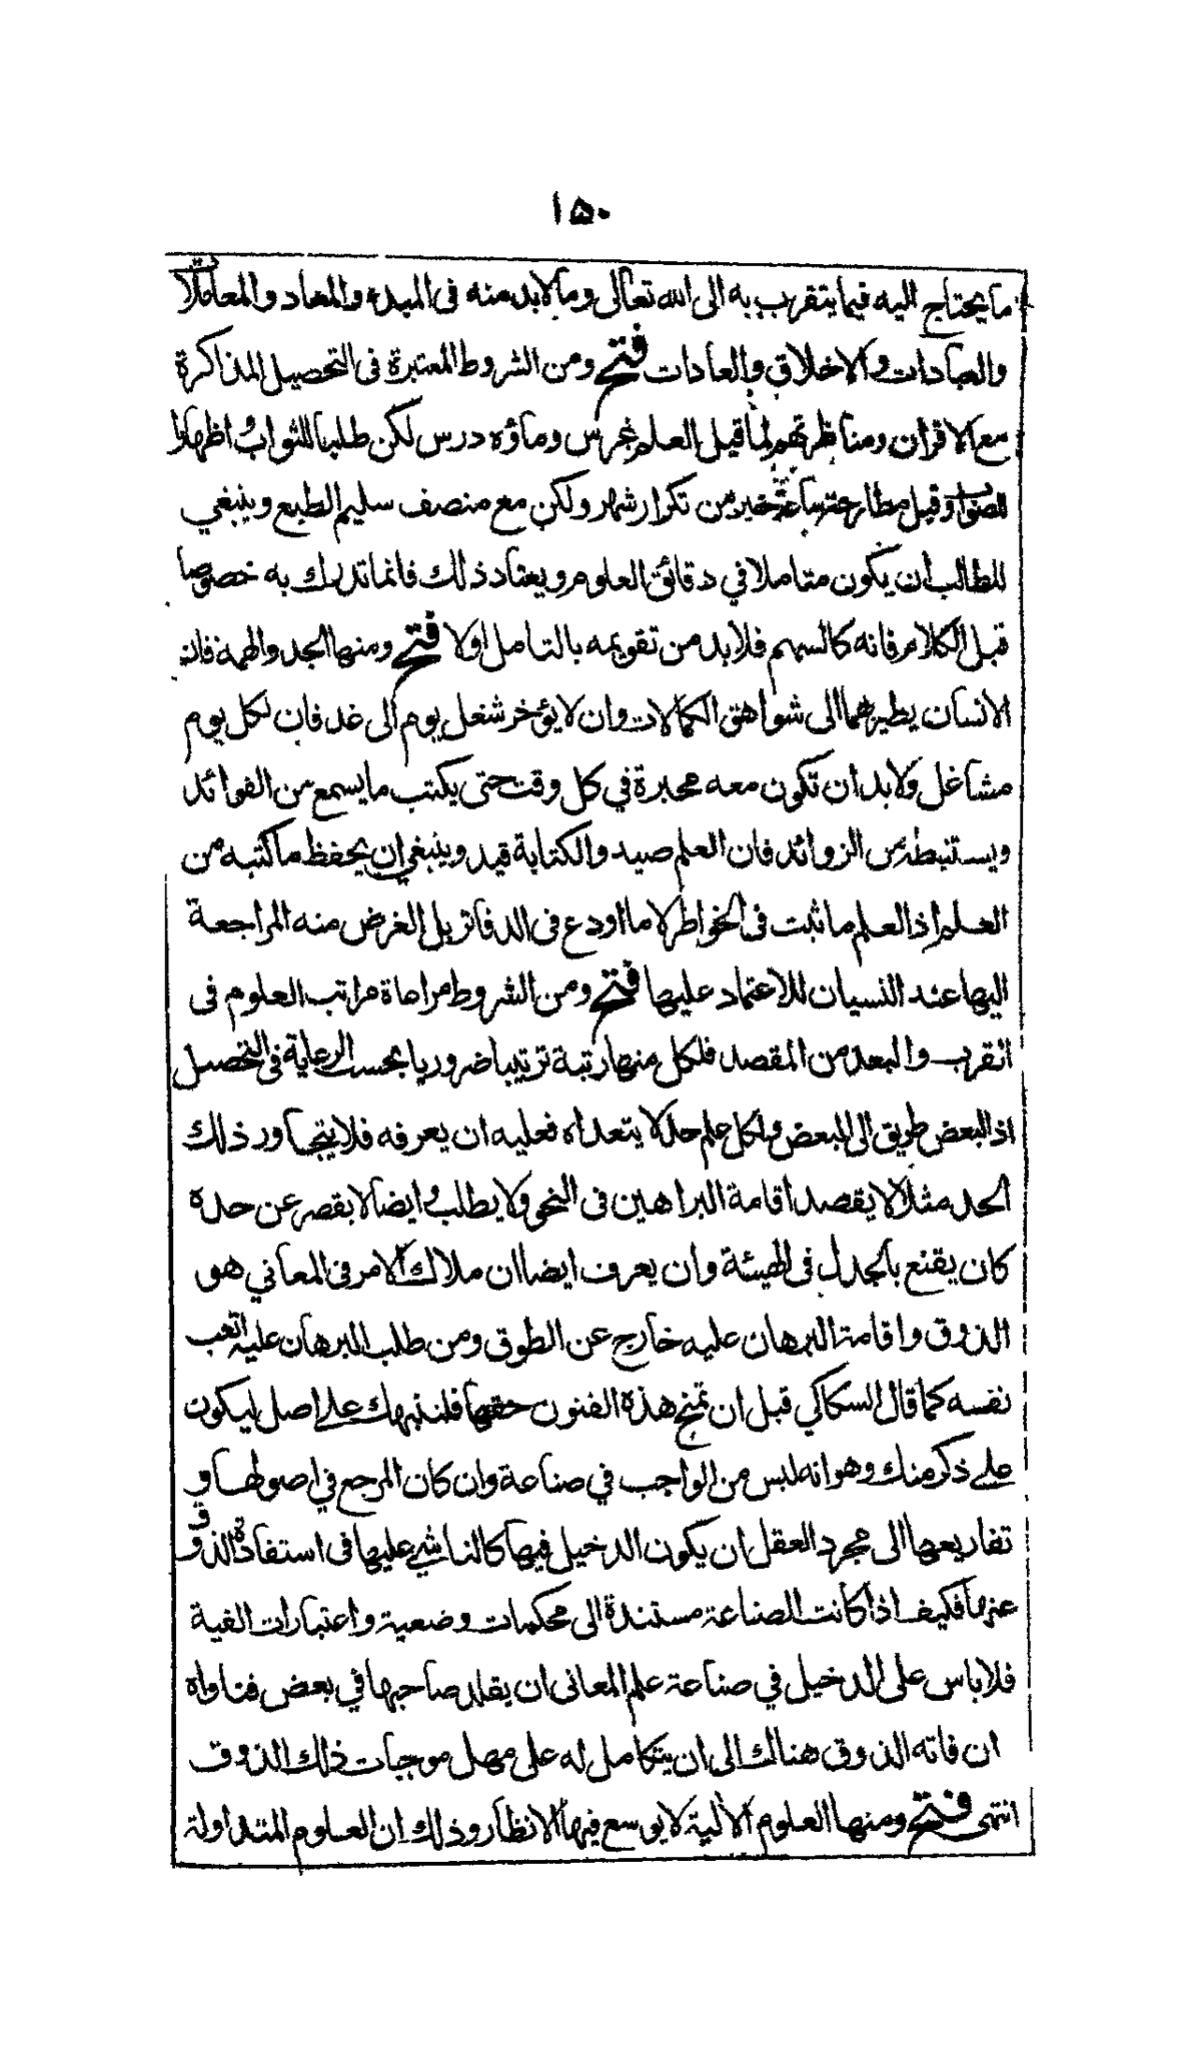 ١٥٠
ما يحتاج اليه فيما يتقرب به الى الله تعالى وما لابد منه فى المبدء والمعاد والمعاملات
والعبادات والاخلاق والعادات فتح ومن الشروط المعتبرة فى التحصيل المذاكرة
مع الاقران ومناظرتهم لما قيل العلم غرس وماؤه درس لكن طلبا للثواب واظهارا
للصواب وقيل مطارحة ساعة خير من تكرار شهر ولكن مع منصف سليم الطبع وينبغي
للطالب ان يكون متاملا في دقائق العلوم ويعتاد ذلك فانما تدرك به خصوصا
قبل الكلام فانه كالسهم فلابد من تقويمه بالتامل اولا فتح ومنها الجد والهمة فان
الانسان يطير بهما الى شواهق الكمالات وان لا يؤخر شغل يوم الى غد فان لكل يوم
مشاغل ولابد ان تكون معه محبرة في كل وقت حتى يكتب ما يسمع من الفوائد
ويستنبط من الزوائد فان العلم صيد والكتابة قيد وينبغي ان يحفظ ما كتبه من
العلم اذ العلم ما ثبت فى الخواطر لا ما اودع فى الدفاتر بل الغرض منه المراجعة
اليها عند النسيان للاعتماد عليها فتح ومن الشروط مراعاة مراتب العلوم فى
القرب والبعد من المقصد فلكل منها رتبة ترتيبا ضروريا بحسب الرعاية فى التحصيل
اذ البعض طريق الى البعض ولكل علم حد لا يتعداه فعليه ان يعرفه فلا يتجاوز ذلك
الحد مثلا لا يقصد اقامة البراهين فى النحو ولا يطلب وايضا لا يقصر عن حده
كان يقنع بالجدل فى الهيئة وان يعرف ايضا ان ملاك الامر فى المعاني هو
الذوق واقامة البرهان عليه خارج عن الطوق ومن طلب البرهان عليه اتعب
نفسه كما قال السكاكي قبل ان نمنح هذه الفنون حقها فلننبهك على اصل ليكون
على ذكر منك وهو انه ليس من الواجب في صناعة وان كان المرجع في اصولها و
تفاريعها الى مجرد العقل ان يكون الدخيل فيها كالناشي عليها فى استفادة الذوق
عنها فكيف اذا كانت الصناعة مستندة الى محكمات وضعية واعتبارات الفية
فلا باس على الدخيل في صناعة علم المعانى ان يقلد صاحبها في بعض فتاواه
ان فاته الذوق هناك الى ان يتكامل له على مهل موجبات ذلك الذوق
انتهى فتح ومنها العلوم الالية لا يوسع فيها الانظار وذلك ان العلوم المتداولة